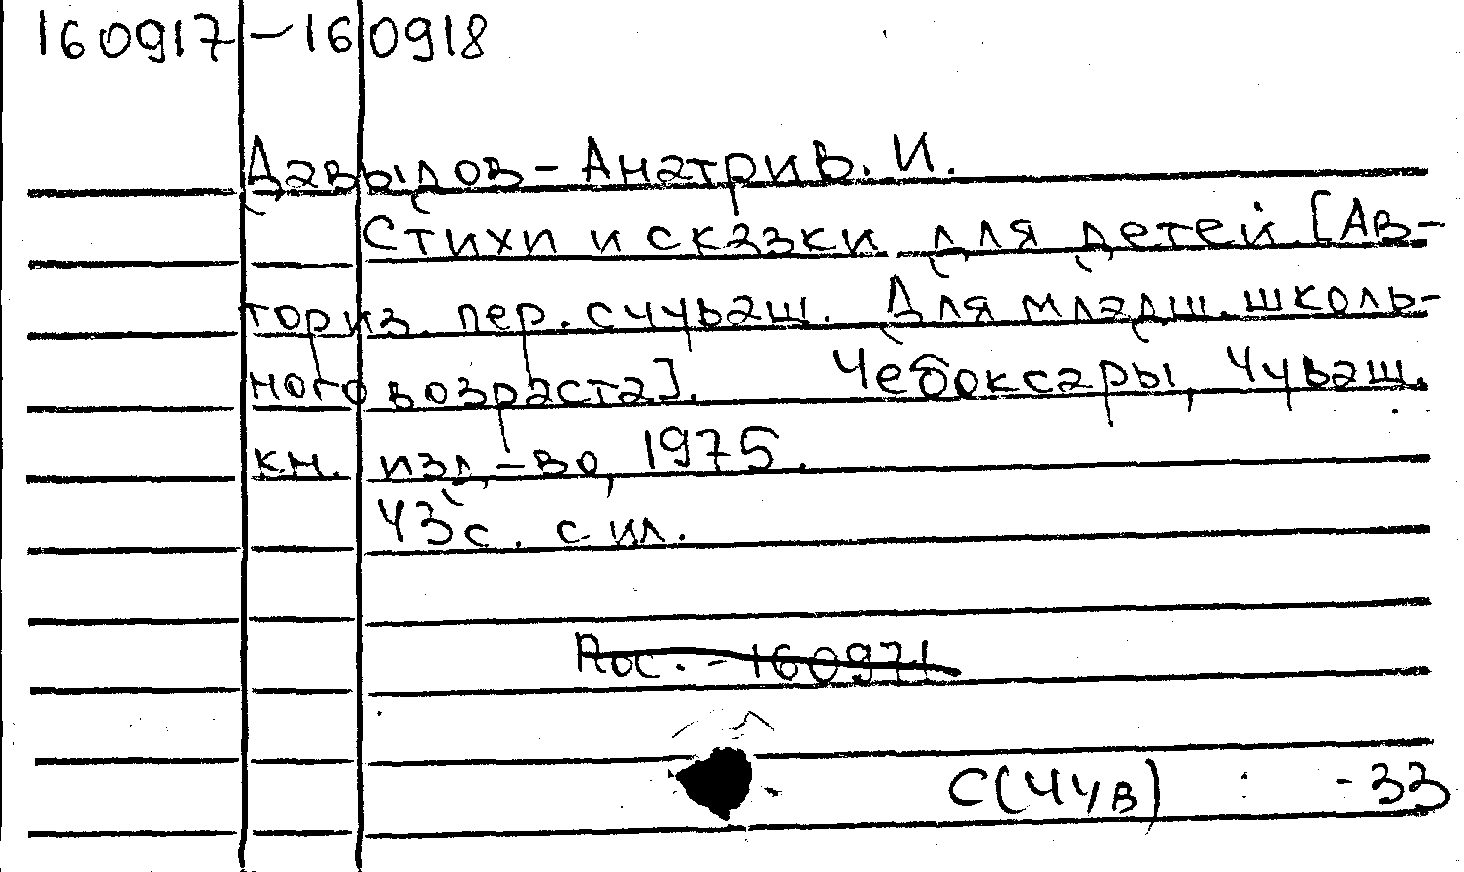 160917-160918
Давыдов-Анатри В. И.
Стихи и сказки для детей. [Ав-
ториз. пер. с чуваш. Для младш. школь-
ного возраста]. Чебоксары, Чуваш.
кн. изд-во, 1975.
43 с. с ил.
Рос. - 160971
С(Чув) -33